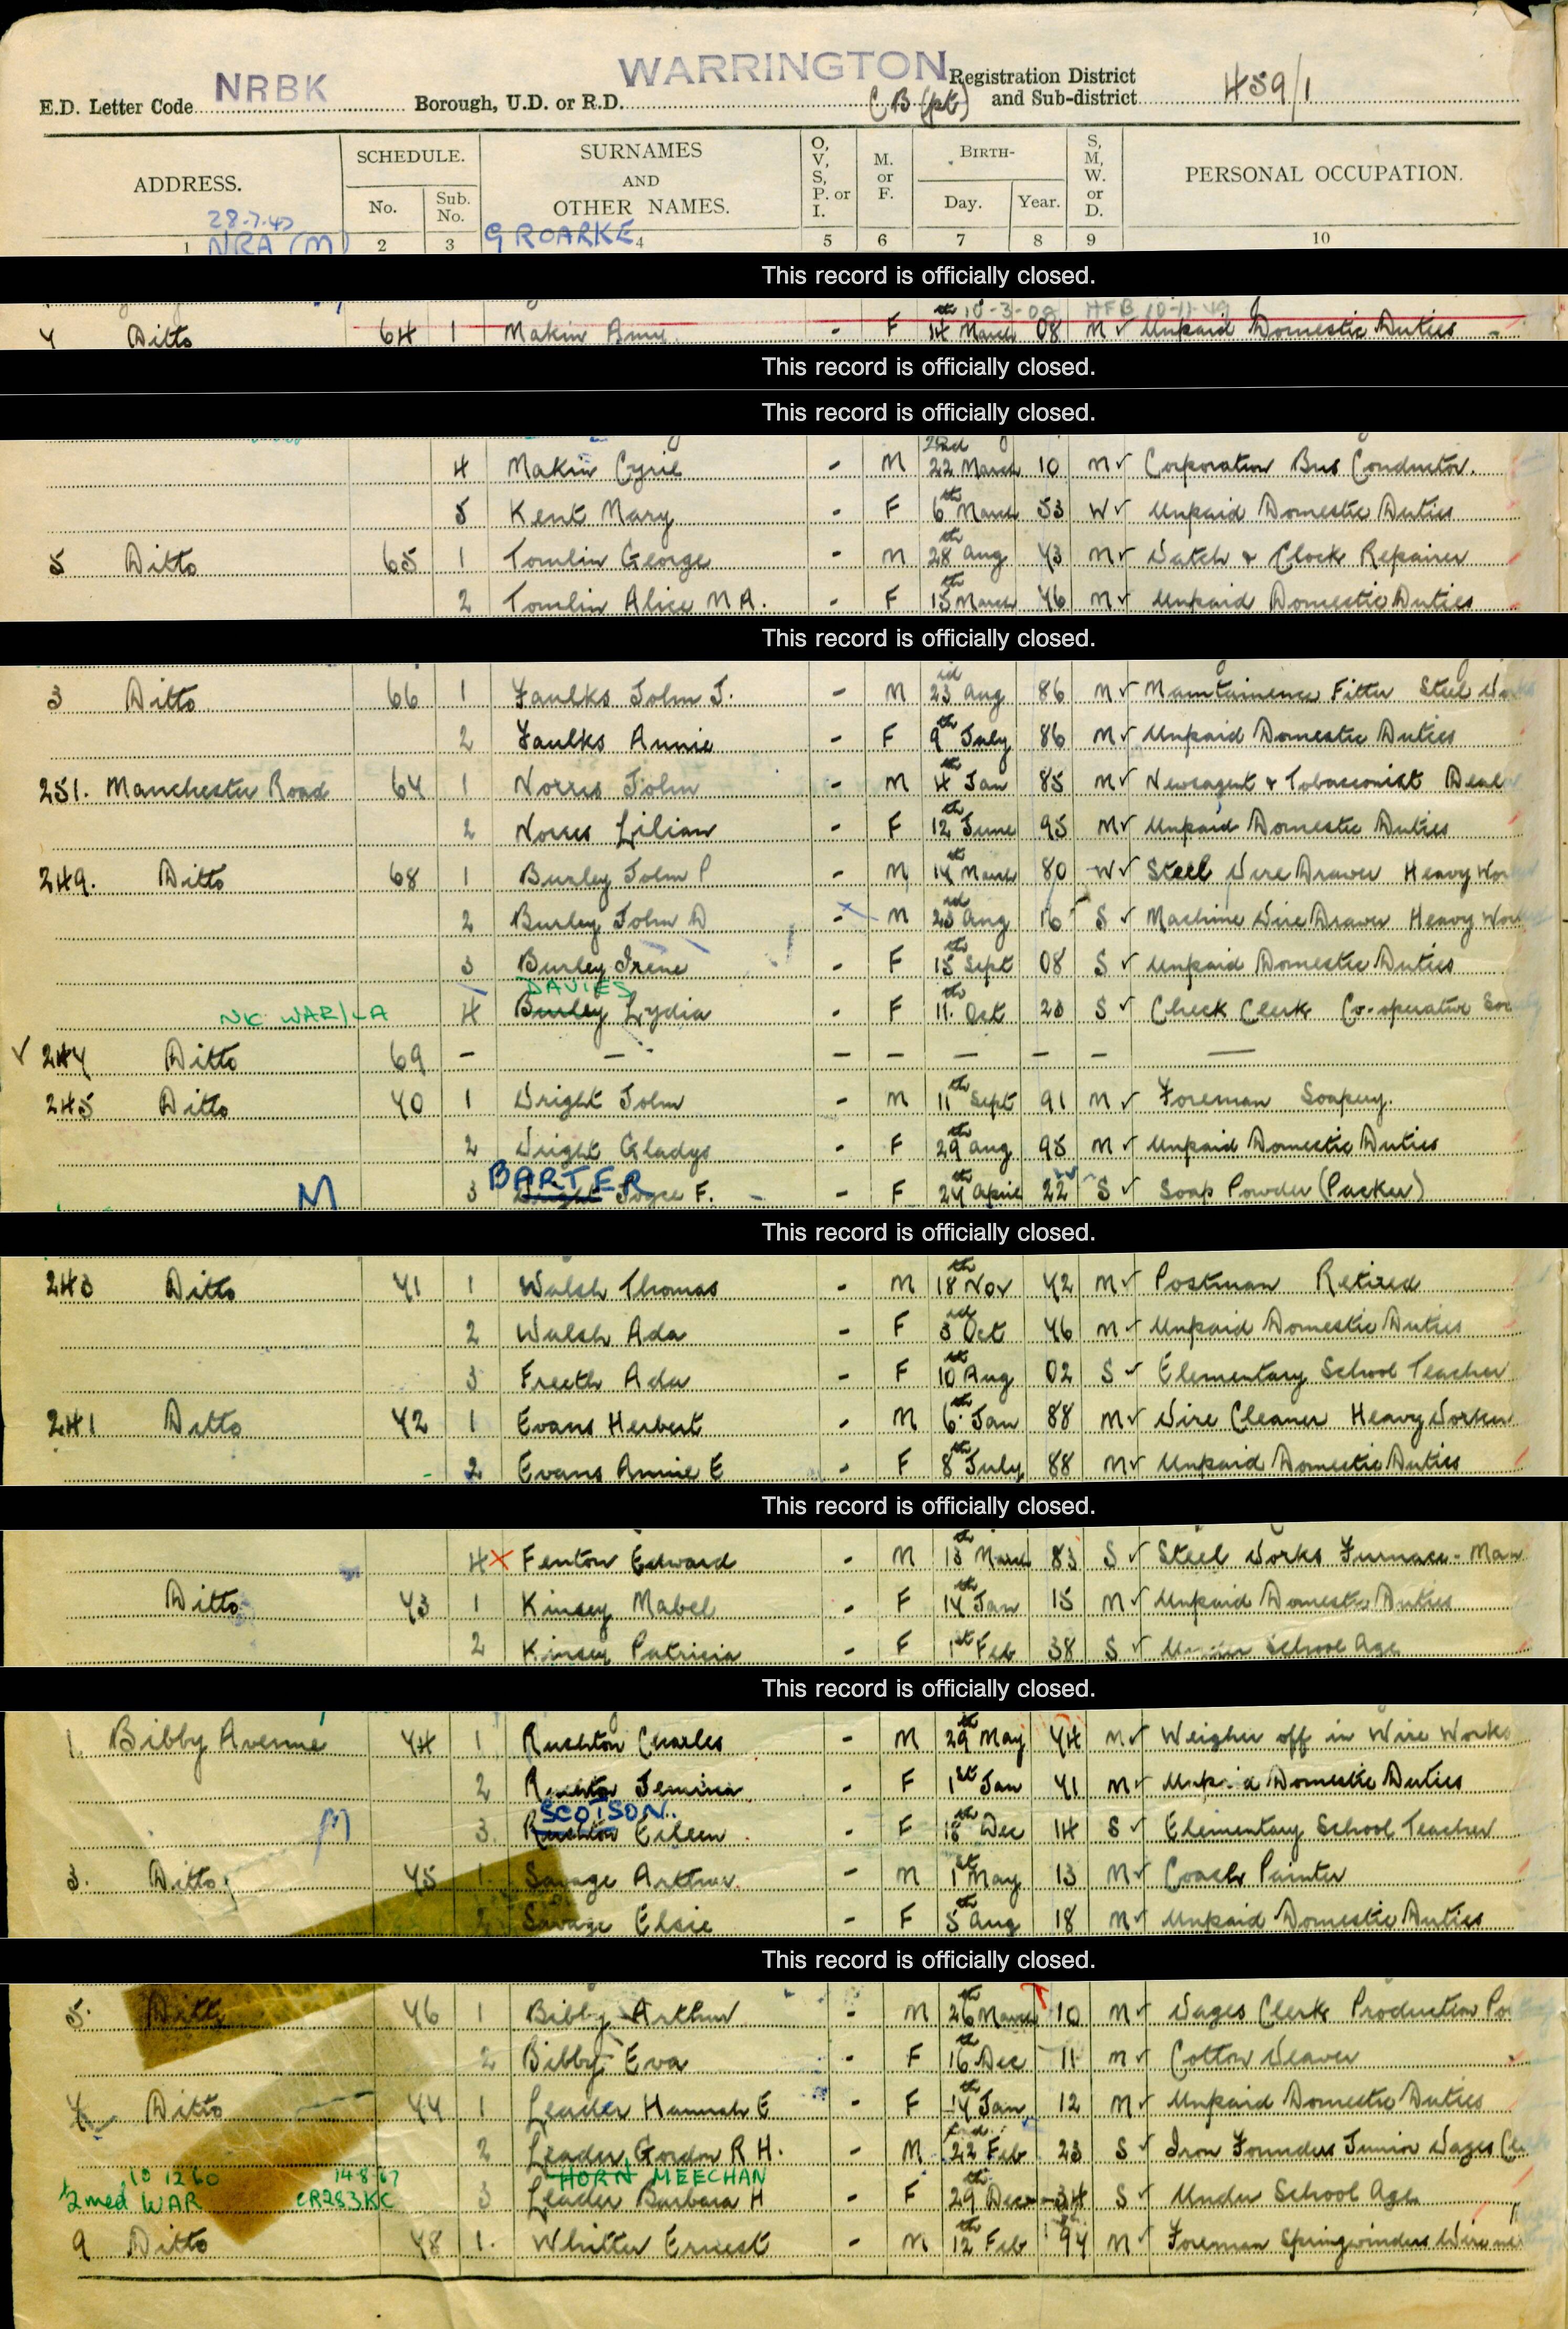 WARRINGTON
E.D. Letter Code NRBK Borough, U.D. or R.D. C B (pt) Registration District and Sub-district 459/1
ADDRESS. SCHEDULE. No. Sub. No. SURNAMES AND OTHER NAMES. O, V, S, P. or I. M. or F. BIRTH- Day. Year. S, M, W. or D. PERSONAL OCCUPATION.
28.7.47
NRA (M) G ROARKE
1 2 3 4 5 6 7 8 9 10
This record is officially closed.
10-3-08 HFB 10-11-49
7 Ditto 64 1 Makin Amy - F 14th March 08 M Unpaid Domestic Duties
This record is officially closed.
This record is officially closed.
4 Makin Cyril - M 22nd March 10 M Corporation Bus Conductor.
5 Kent Mary - F 6th March 53 W Unpaid Domestic Duties
5 Ditto 65 1 Tomlin George - M 28th Aug 73 M Watch & Clock Repairer
2 Tomlin Alice M A. - F 15th March 76 M Unpaid Domestic Duties
This record is officially closed.
3 Ditto 66 1 Faulks John J. - M 23rd Aug 86 M Maintainence Fitter Steel
2 Faulks Annie - F 9th July 86 M Unpaid Domestic Duties
251. Manchester Road 67 1 Norris John - M 4th Jan 85 M Newsagent & Tobacconist Deal
2 Norris Lilian - F 12th June 95 M Unpaid Domestic Duties
249. Ditto 68 1 Burley John P - M 14th March 80 W Steel Wire Drawer Heavy Wor
2 Burley John D - M 23rd Aug 16 S Machine Wire Drawer Heavy Wor
3 Burley Irene - F 15th Sept 08 S Unpaid Domestic Duties
DAVIES
NK WAR/LA 4 Burley Lydia - F 11th Oct 23 S Check Clerk Co-operative Soc
247 Ditto 69 - - - - - - - -
245 Ditto 70 1 Wright John - M 11th Sept 91 M Foreman Soapery.
2 Wright Gladys - F 29th Aug 95 M Unpaid Domestic Duties
BARTER
M 3 Wright Joyce F. - F 27th April 22 S Soap Powder (Packer)
This record is officially closed.
243 Ditto 71 1 Walsh Thomas - M 18th Nov 72 M Postman Retired
2 Walsh Ada - F 3rd Oct 76 M Unpaid Domestic Duties
3 Freeth Ada - F 10th Aug 02 S Elementary School Teacher
241 Ditto 72 1 Evans Herbert - M 6th Jan 88 M Wire Cleaner Heavy Worker
2 Evans Annie E - F 8th July 88 M Unpaid Domestic Duties
This record is officially closed.
4 Fenton Edward - M 13th March 83 S Steel Works Furnace-Man
Ditto 73 1 Kinsey Mabel - F 14th Jan 15 M Unpaid Domestic Duties
2 Kinsey Patricia - F 1st Feb 38 S Under School Age
This record is officially closed.
1. Bibby Avenue 74 1 Rushton Charles - M 29th May 74 M Weigher off in Wire Works
2 Rushton Jemima - F 1st Jan 71 M Unpaid Domestic Duties
SCOTSON.
M 3. Rushton Eileen - F 18th Dec 14 S Elementary School Teacher
3. Ditto 75 1. Savage Arthur - M 1st May 13 M Coach Painter
2 Savage Elsie - F 5th Aug 18 M Unpaid Domestic Duties
This record is officially closed.
5. Ditto 76 1 Bibby Arthur - M 26th March 10 M Wages Clerk Production
2 Bibby Eva - F 16th Dec 11 M Cotton Weaver
7 Ditto 77 1 Leader Hannah E - F 14th Jan 12 M Unpaid Domestic Duties
2 Leader Gordon R H. - M 22nd Feb 23 S Iron Founders Junior Wages
10 12 60 14.8.67 HORN MEECHAN
2 med WAR CR283KC 3 Leader Barbara H - F 29th Dec 34 S Under School Age
9 Ditto 78 1. Whitter Ernest - M 12th Feb 94 M Foreman Springwinders